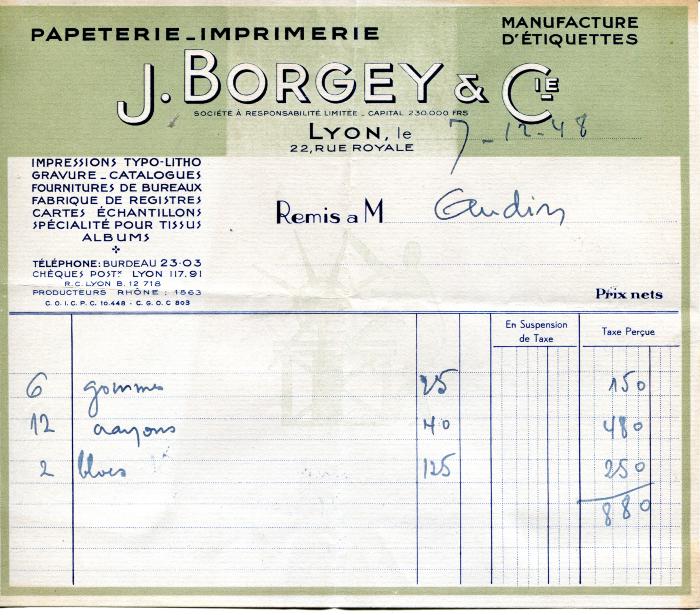 PAPETERIE_IMPRIMERIE
MANUFACTURE
D'ÉTIQUETTES
J. BORGEY & CIE
SOCIÉTÉ À RESPONSABILITÉ LIMITÉE _ CAPITAL 230.000 FRS
LYON, le 7-12-48
22, RUE ROYALE
IMPRESSIONS TYPO-LITHO
GRAVURE _ CATALOGUES
FOURNITURES DE BUREAUX
FABRIQUE DE REGISTRES
CARTES ÉCHANTILLONS
SPÉCIALITÉ POUR TISSUS
ALBUMS
TÉLÉPHONE: BURDEAU 23-03
CHÈQUES POSTX LYON 117.91
R.C. LYON B. 12 718
PRODUCTEURS RHÔNE : 1563
C.O.I.C.P.C. 10.448 - C.G.O.C 803
Remis a M Gaudin
Prix nets
En Suspension
de Taxe
Taxe Perçue
6 gommes 25 150
12 crayons 40 480
2 blocs 125 250
880